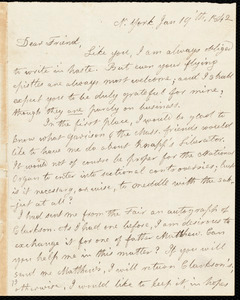 N. York Jan 19th, 1842
Dear Friend,
Like you, I am always obliged
to write in haste. But even your flying
epistles are always most welcome, and I hold
expect you to be duly grateful for mine,
though they are purely on business.
In the first place, I would be glad to
know what Garrison & the Mass. friends would
like to have me do about Knapp's Liberator.
It would not of course be proper for the National
Organ to enter into sectional controversies; but
is it necessary, or wise, to meddle with the sub-
ject at all?
I had sent me from the Fair an autograph of
Clarkson. As I had one before, I am desirous to
exchange it for one of father Matthew. Can
you help me in this matter? If you will
send me Matthew's, I will return Clarkson's;
otherwise, I would like to keep it in hopes